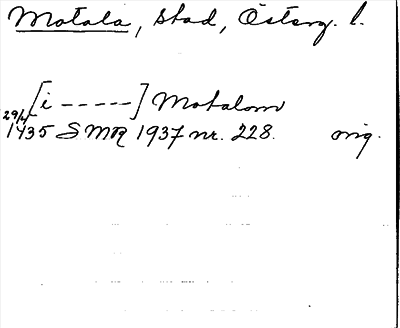 Motala, stad, Österg. l.
[i - - - - -] Motalom
29/4
1435 SMR 1937 nr. 228. orig.